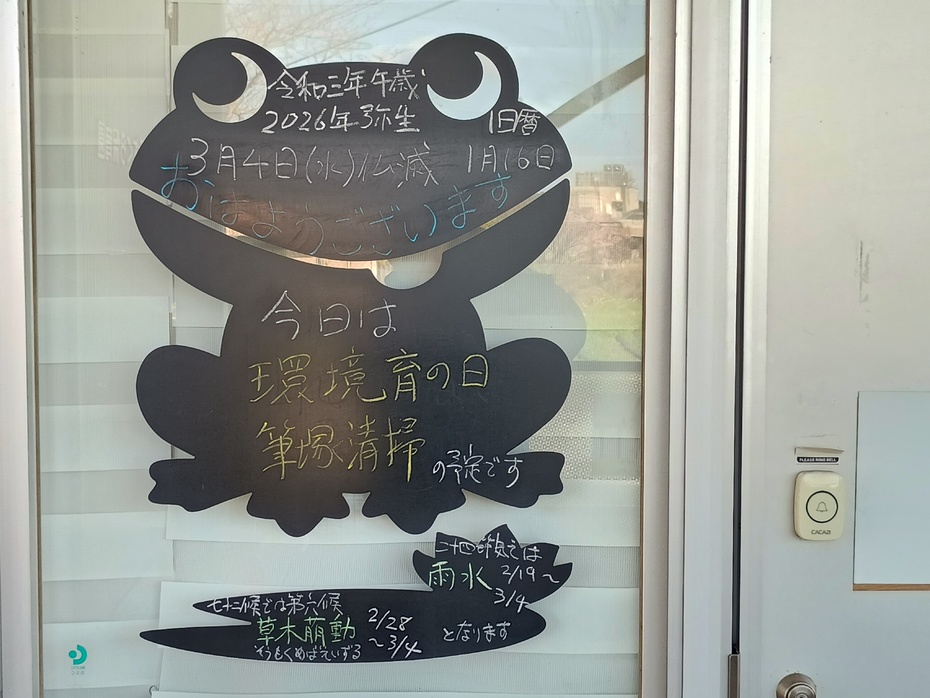 令和三年午歳
2026年弥生
旧暦
3月4日(水)仏滅 1月16日
おはようございます
今日は
環境育の日
筆塚清掃
の予定です
二十四節気では
雨水 2/19~
3/4
七十二候では第六候
草木萌動
そうもくめばえいずる
2/28
~3/4
となります
PLEASE RING BELL
CACAZI